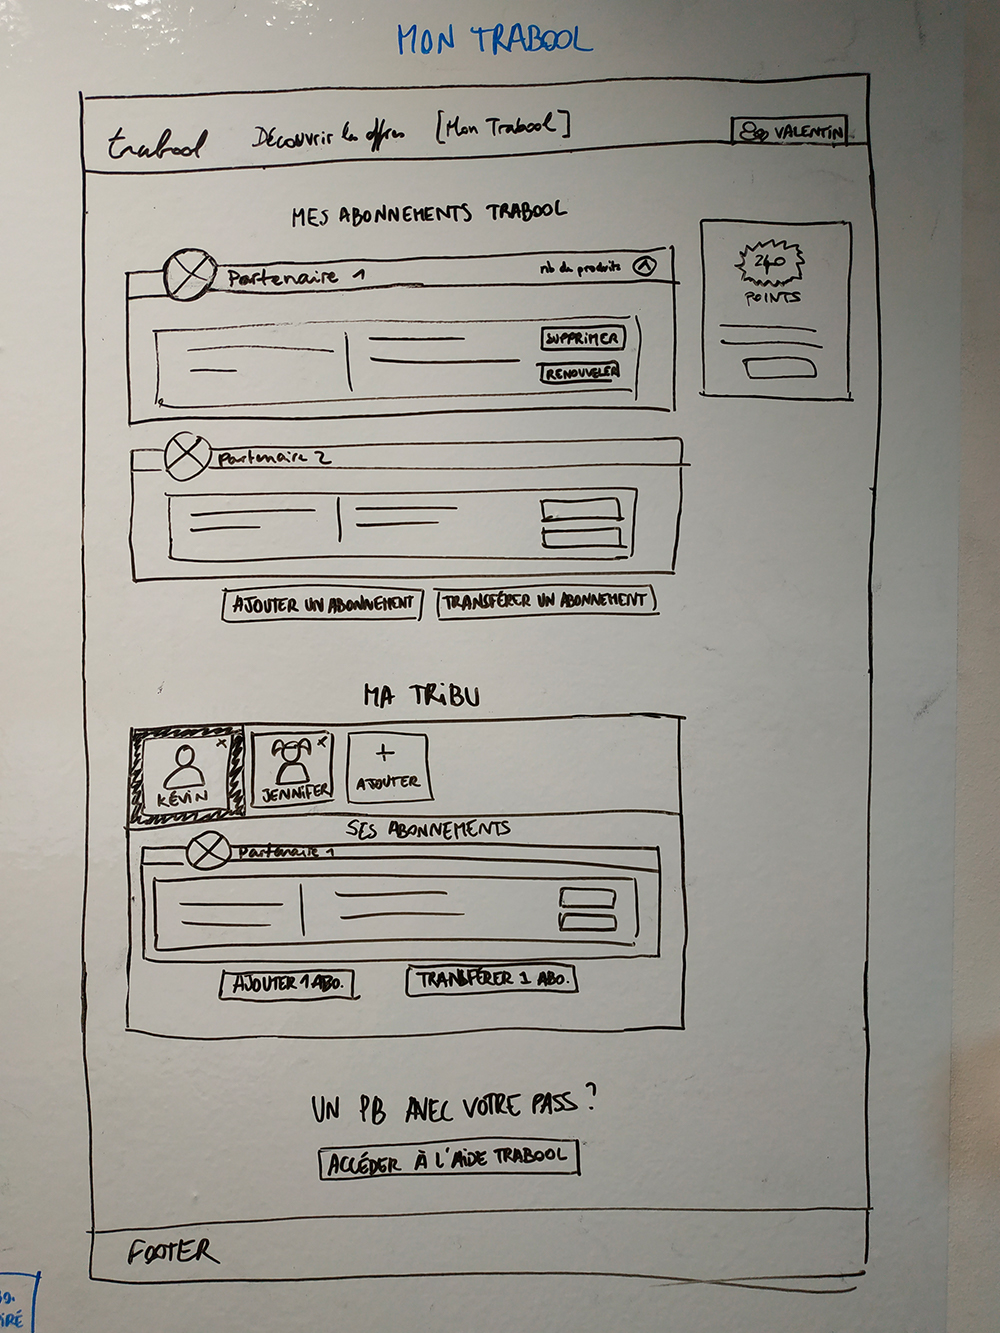 MON TRABOOL
trabool Découvrir les offres [Mon Trabool] VALENTIN
MES ABONNEMENTS TRABOOL
Partenaire 1 nb de produits
240
POINTS
SUPPRIMER
RENOUVELER
Partenaire 2
AJOUTER UN ABONNEMENT TRANSFÉRER UN ABONNEMENT
MA TRIBU
x x +
KÉVIN JENNIFER AJOUTER
SES ABONNEMENTS
Partenaire 1
AJOUTER 1 ABO. TRANSFÉRER 1 ABO.
UN PB AVEC VOTRE PASS ?
ACCÉDER À L'AIDE TRABOOL
FOOTER